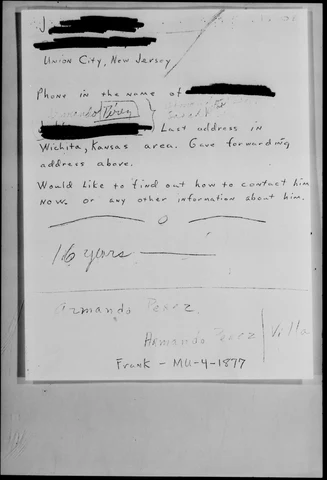 J
Union City, New Jersey
Phone in the name of
Armando Pérez
Last address in
Wichita, Kansas area. Gave forwarding
address above.
Would like to find out how to contact him
now. or any other information about him.
16 years
Armando Perez
Armando Perez | Villa
Frank - MU-4-1877